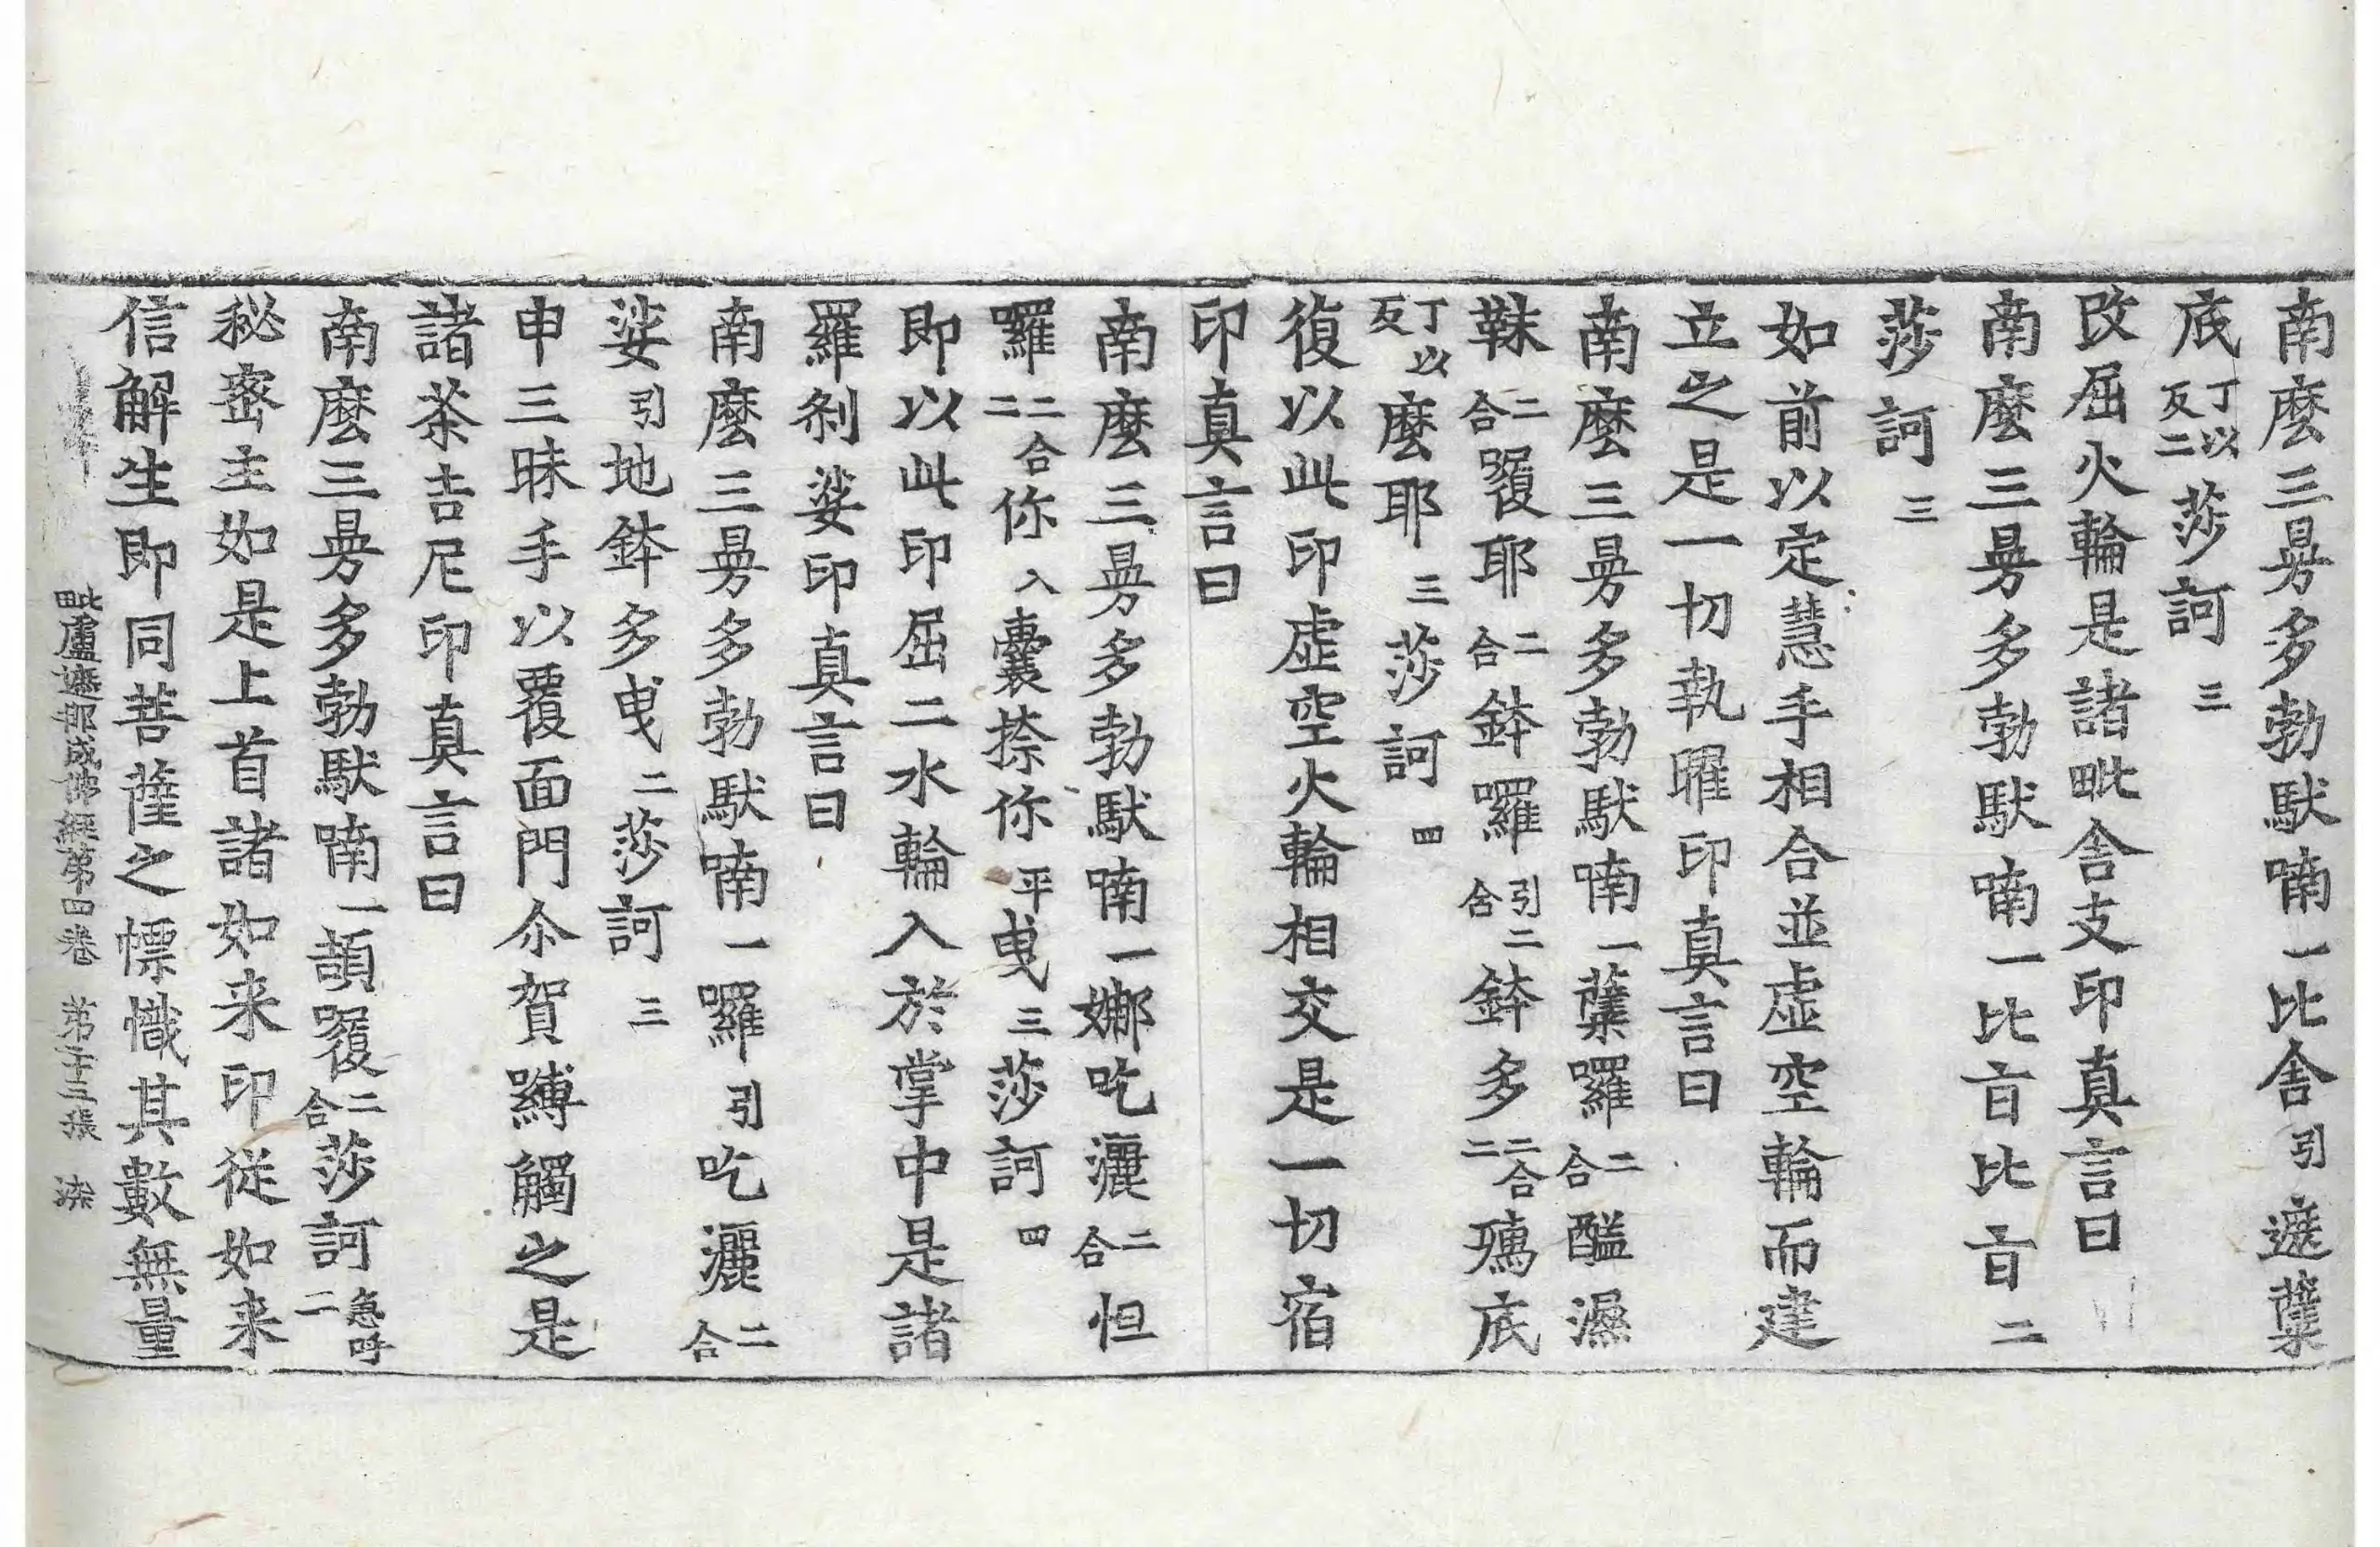 南麼三曼多勃馱喃一比舍引遮蘖
底丁以反二莎訶三
改屈火輪是諸毗舍支印真言曰
南麼三曼多勃馱喃一比旨比旨二
莎訶三
如前以定慧手相合並虛空輪而建
立之是一切執曜印真言曰
南麼三曼多勃馱喃一蘖囉二合醯濕
靺二合囉耶二合鉢囉引二合鉢多二合二孺底
丁以反麼耶三莎訶四
復以此印虛空火輪相交是一切宿
印真言曰
南麼三曼多勃馱喃一娜吃灑二合怛
囉二合二你入囊捺你平曳三莎訶四
即以此印屈二水輪入於掌中是諸
羅剎娑印真言曰
南麼三曼多勃馱喃一囉引吃灑二合
娑引地鉢多曳二莎訶三
申三昧手以覆面門尒賀嚩觸之是
諸荼吉尼印真言曰
南麼三曼多勃馱喃一頡㘑二合莎訶急呼二
秘密主如是上首諸如来印從如来
信解生即同菩薩之幖幟其數無量
毗盧遮那成佛經第四卷 第十三張 染